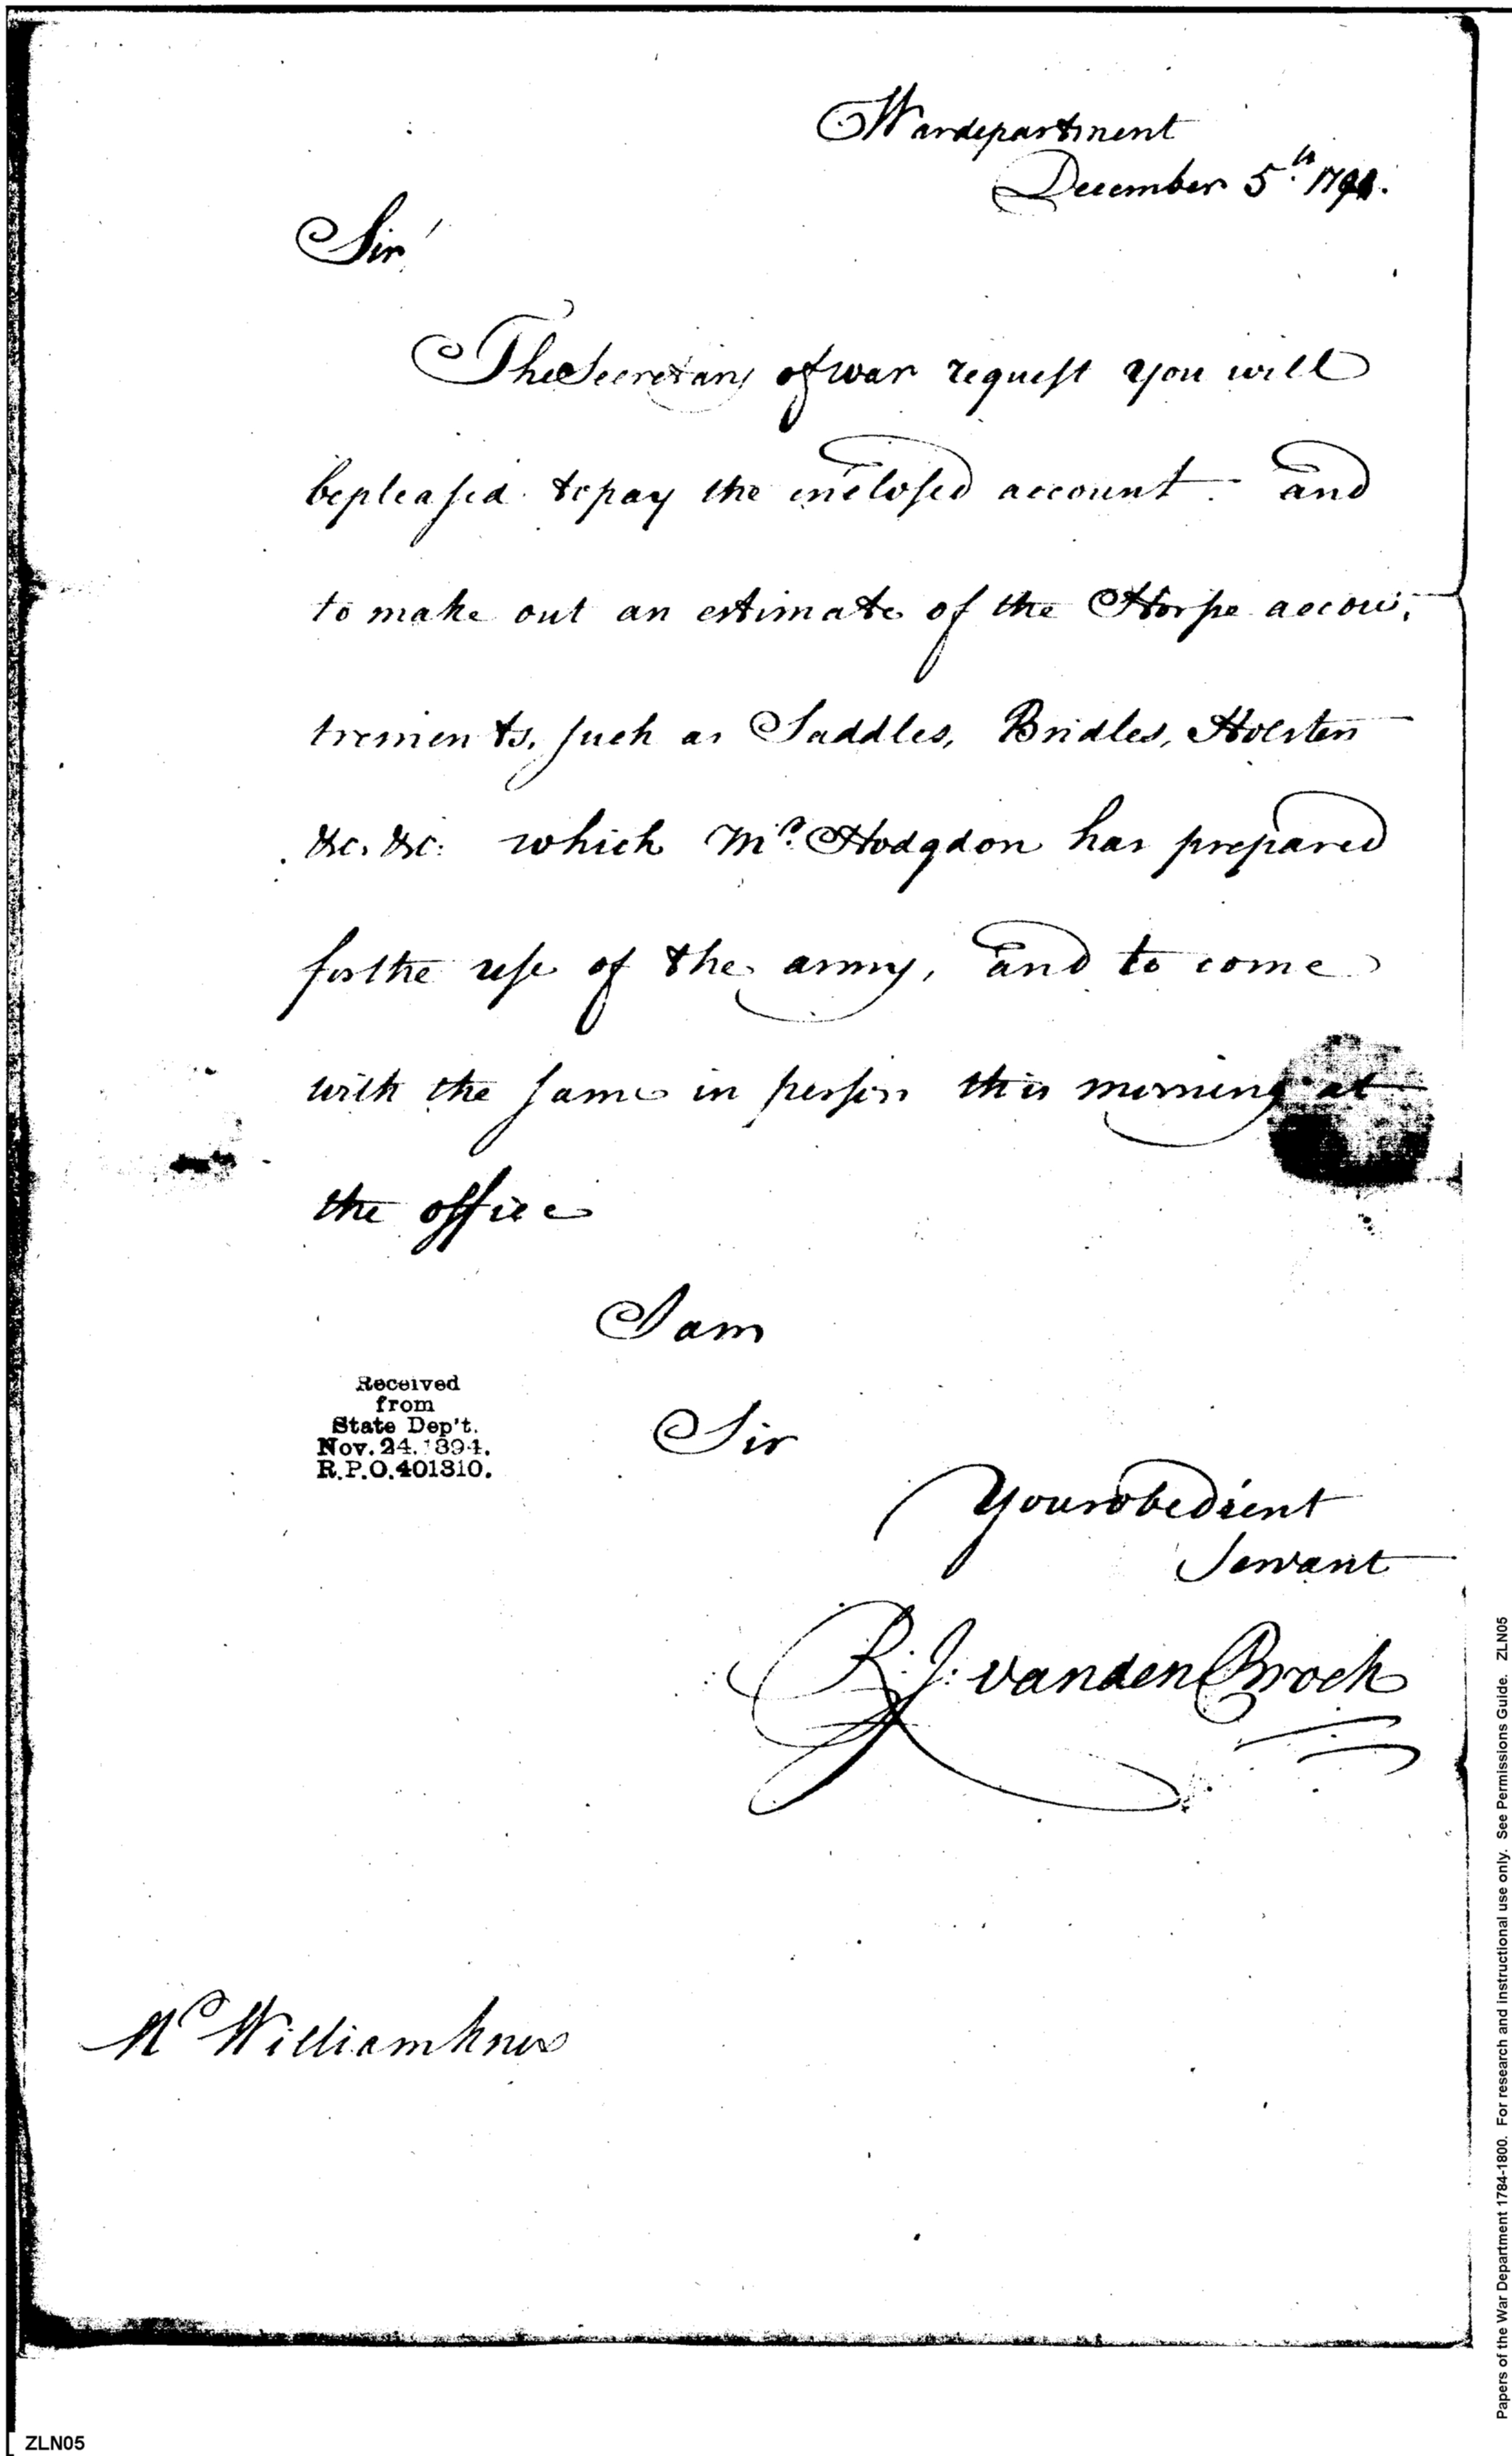 Wardepartment
December 5th. 1791.
Sir
The Secretary of war request you will
bepleased to pay the inclosed account - and
to make out an estimate of the Horse accou,
trements, such as Saddles, Bridles, Holsters
&c. &c: which Mr. Hodgdon has prepared
forthe use of the army, and to come
with the same in person this morning at
the office
I am
Received
from
State Dep't.
Nov. 24. 1894.
R.P.O. 401310.
Sir
Your obedient
Servant
R. J. vanden Broek
Mr William Knox
Papers of the War Department 1784-1800. For research and instructional use only. See Permissions Guide. ZLN05
ZLN05